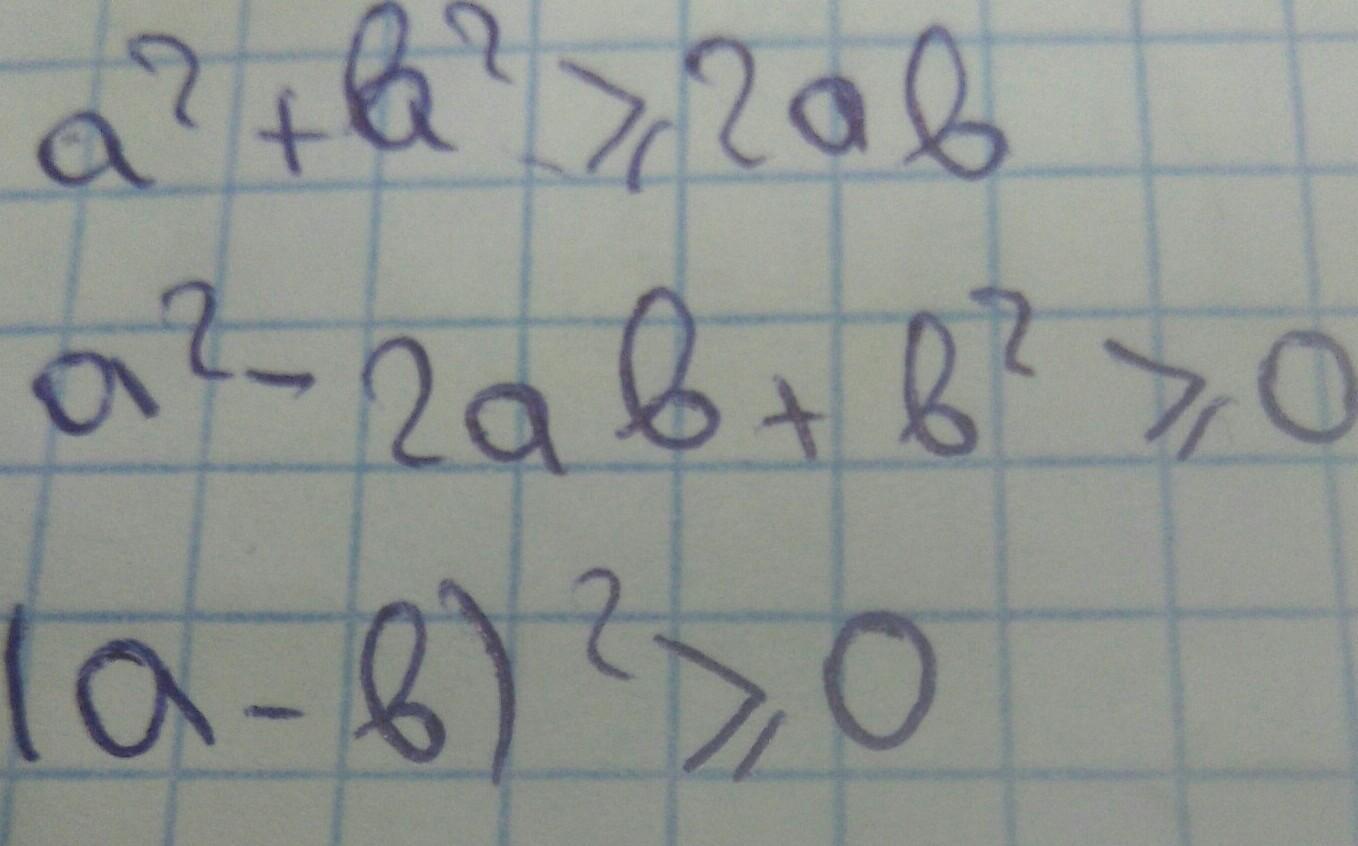 a² + b² ⩾ 2ab
a² - 2ab + b² ⩾ 0
(a - b)² ⩾ 0